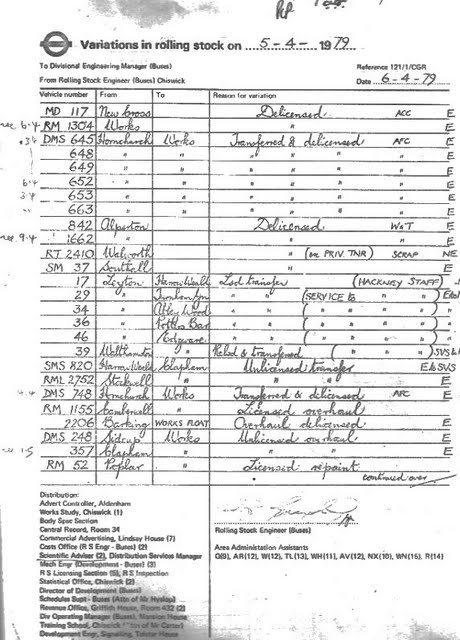 Variations in rolling stock on 5-4- 1979
To Divisional Engineering Manager (Buses) Reference 121/1/CGR
From Rolling Stock Engineer (Buses) Chiswick Date 6-4-79
Vehicle number From To Reason for variation
MD 117 New Cross Delicensed ACC E
6.4 RM 1304 Works " " E
3.4 DMS 645 Hornchurch Works Transferred & delicensed AFC E
648 " " " " " " E
649 " " " " " " E
6.4 652 " " " " " " E
3.4 653 " " " " " " E
663 " " " " " " E
842 Alperton Delicensed W&T E
9.4 1662 " " " E
RT 2410 Walworth " (ex PRIV. TNR) SCRAP NE
SM 37 Southall " E
17 Leyton Harrow Weald Lsd transfer (HACKNEY STAFF)
29 " " " (SERVICE to " " )
34 " Abbey Wood " " ( " " " )
36 " Potters Bar " " ( " " " )
46 " Edgware " " ( " " " )
39 Walthamstow " Relsd & transferred ( " " " ) SVS
SMS 820 Harrow Weald Clapham Unlicensed transfer E to SVS
RML 2752 Stockwell " " " E
4.4 DMS 748 Hornchurch Works Transferred & delicensed AFC E
RM 1155 Camberwell " Licensed overhaul E
2206 Barking WORKS FLOAT Overhaul delicensed E
DMS 248 Sidcup Works Unlicensed overhaul E
1.5 357 Clapham " " " E
RM 52 Poplar " Licensed repaint E
continued over
Distribution:
Advert Controller, Aldenham
Works Study, Chiswick (1)
Body Spec Section
Central Record, Room 34
Commercial Advertising, Lindsay House (7)
Costs Office (R S Engr - Buses) (2)
Scientific Adviser (2), Distribution Services Manager
Mech Engr (Development - Buses) (3)
R S Licensing Section (5), R S Inspection
Statistical Office, Chiswick (2)
Director of Development (Buses)
Schedules Supt - Buses (Attn of Mr Hyslop)
Revenue Office, Griffith House, Room 432 (2)
Div Operating Manager (Buses), Mansion House
Training School, Chiswick (Attn of Mr Carter)
Development Engr, Signalling, Telstar House
Rolling Stock Engineer (Buses)
Area Administration Assistants
Q(9), AR(12), W(12), TL(13), WH(11), AV(12), NX(10), WN(16), R(14)